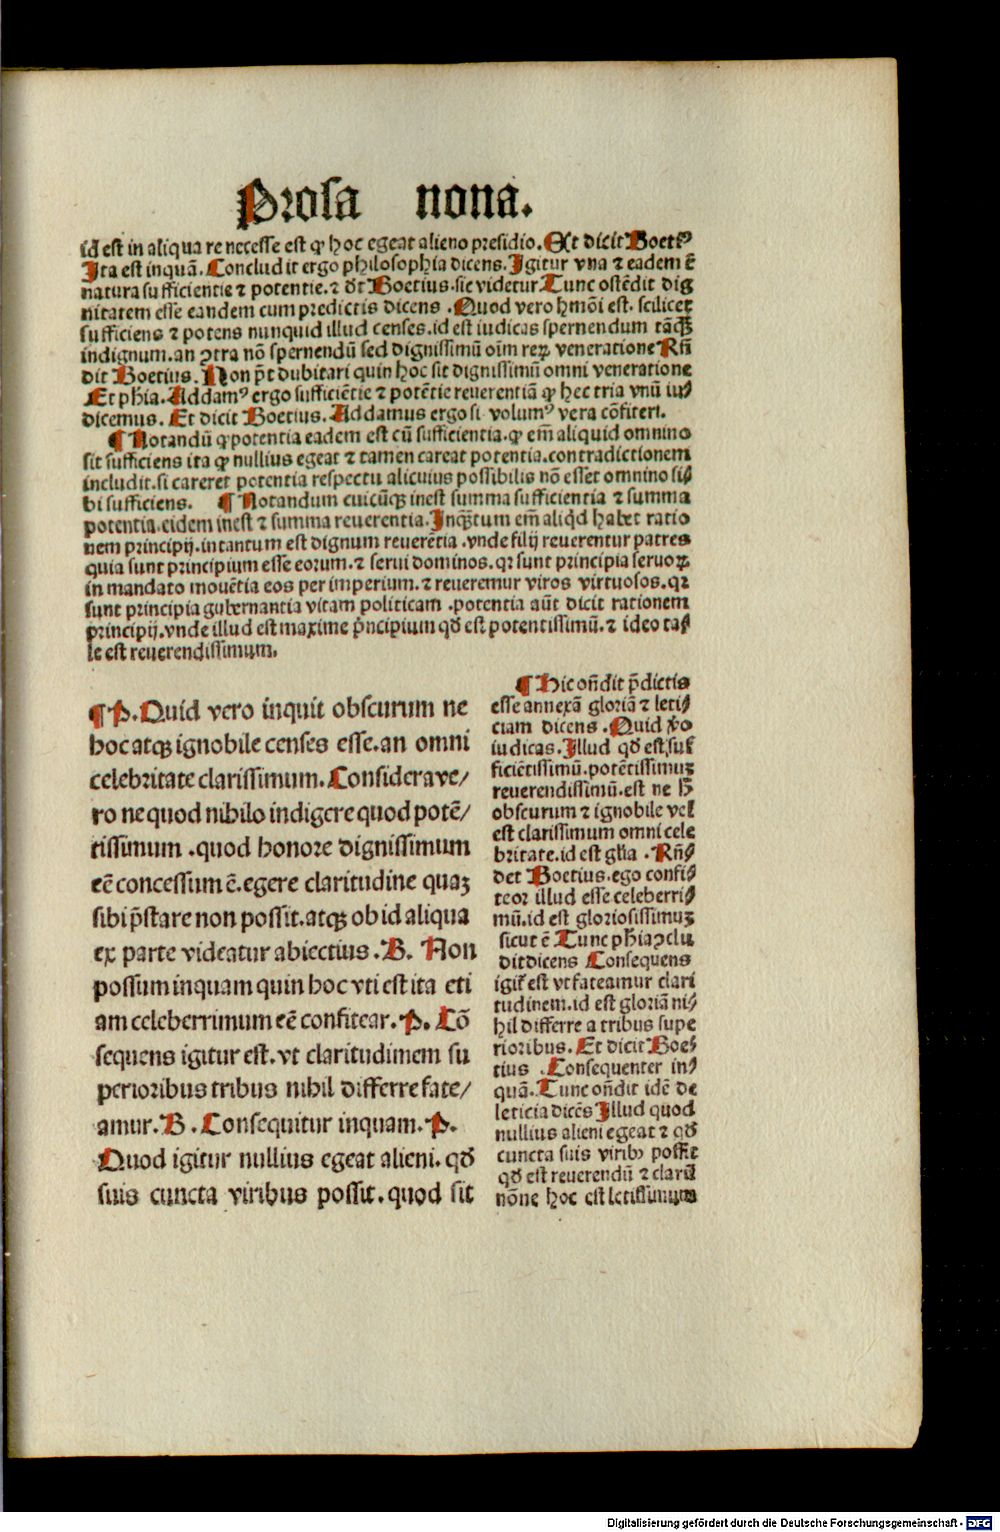 Prosa nona.
id est in aliqua re necesse est ꝙ hoc egeat alieno presidio. Et dicit Boetiꝰ
Ita est inquā. Concludit ergo philosophia dicens. Igitur vna ⁊ eadem ē
natura sufficientie ⁊ potentie. ⁊ dr̄ Boetius. sic videtur. Tunc ostēdit dig
nitatem esse eandem cum predictis dicens . Quod vero hmōi est. scilicet
sufficiens ⁊ potens nunquid illud censes. id est iudicas spernendum tāꝙꝫ
indignum. an ꝯtra nō spernendū sed dignissimū oīm reꝝ veneratione Rn̄
dit Boetius. Non pōt dubitari quin hoc sit dignissimū omni veneratione
Et phīa. Addamꝰ ergo sufficiētie ⁊ potētie reuerentiā ꝙ hec tria vnū iu⸗
dicemus. Et dicit Boetius. Addamus ergo si volumꝰ vera cōfiteri.
¶ Notandū ꝙ potentia eadem est cū sufficientia. ꝙ em̄ aliquid omnino
sit sufficiens ita ꝙ nullius egeat ⁊ tamen careat potentia. contradictionem
includit. si careret potentia respectu alicuius possibilis nō esset omnino si⸗
bi sufficiens. ¶ Notandum cuicūqꝫ inest summa sufficientia ⁊ summa
potentia. eidem inest ⁊ summa reuerentia. Inqꝫtum em̄ aliqd habet ratio
nem principij. intantum est dignum reuerētia .vnde filij reuerentur patres
quia sunt principium esse eorum. ⁊ serui dominos. qr sunt principia seruoꝝ
in mandato mouētia eos per imperium. ⁊ reueremur viros virtuosos. qr
sunt principia gubernantia vitam politicam .potentia aūt dicit rationem
principij. vnde illud est maxime p̄ncipium qđ est potentissimū. ⁊ ideo ta⸗
le est reuerendissimum.
¶ P. Quid vero inquit obscurum ne
hoc atqꝫ ignobile censes esse. an omni
celebritate clarissimum. Considera ve/
ro ne quod nihilo indigere quod potē/
tissimum .quod honore dignissimum
eē concessum ē. egere claritudine quaꝫ
sibi p̄stare non possit. atqꝫ ob id aliqua
ex parte videatur abiectius . B. Non
possum inquam quin hoc vti est ita eti
am celeberrimum eē confitear. P. Cō
sequens igitur est. vt claritudimem su
perioribus tribus nihil differre fate/
amur. B . Consequitur inquam. P.
Quod igitur nullius egeat alieni. qđ
suis cuncta viribus possit. quod sit
¶ Hic on̄dit p̄dictis
esse annexā gloriā ⁊ leti⸗
ciam dicens . Quid v̄o
iudicas. Illud qđ est suf
ficiētissimū. potētissimuꝫ
reuerendissimū. est ne h̄
obscurum ⁊ ignobile vel
est clarissimum omni cele
britate. id est gl̄ia . Rn̄⸗
det Boetius. ego confi⸗
teor illud esse celeberri⸗
mū. id est gloriosissimuꝫ
sicut ē Tunc ph̄ia ꝯclu
dit dicens Consequens
igit̄ est vt fateamur clari
tudinem. id est gloriā ni⸗
hil differre a tribus supe
rioribus. Et dicit Boe⸗
tius . Consequenter in⸗
quā. Tunc on̄dit idē de
leticia dicēs Illud quod
nullius alieni egeat ⁊ qđ
cuncta suis viribꝰ possit
qđ est reuerendū ⁊ clarū
nōne hoc est letissimum
Digitalisierung gefördert durch die Deutsche Forschungsgemeinschaft - DFG